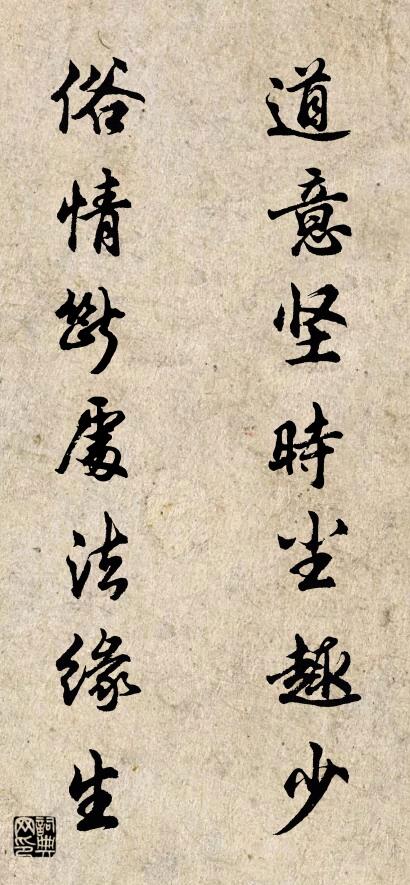 道意坚時尘趣少
俗情断處法緣生
詞典网印